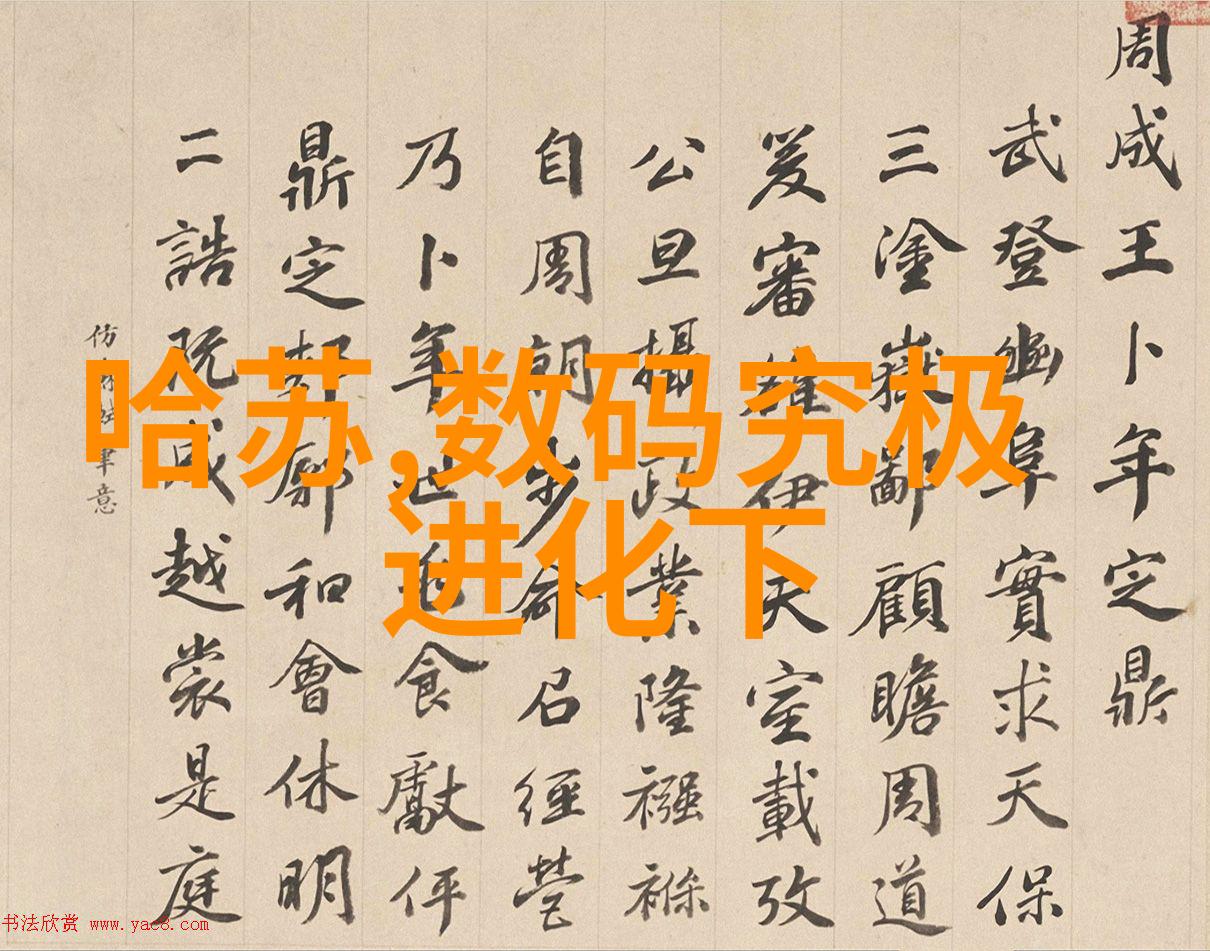 周成王卜年定鼎
武登幽阜實求天保
三塗嶽鄙顧瞻周道
爰審維伊天室載攷
公旦攝政業隆襁褓
自周朝步命召經營
乃卜年世食獻伻
鼎定郟鄏和會休明
二誥既成越裳是庭
仿筆意
哈苏,数码究极
进化下
书法欣赏 www.yac8.com